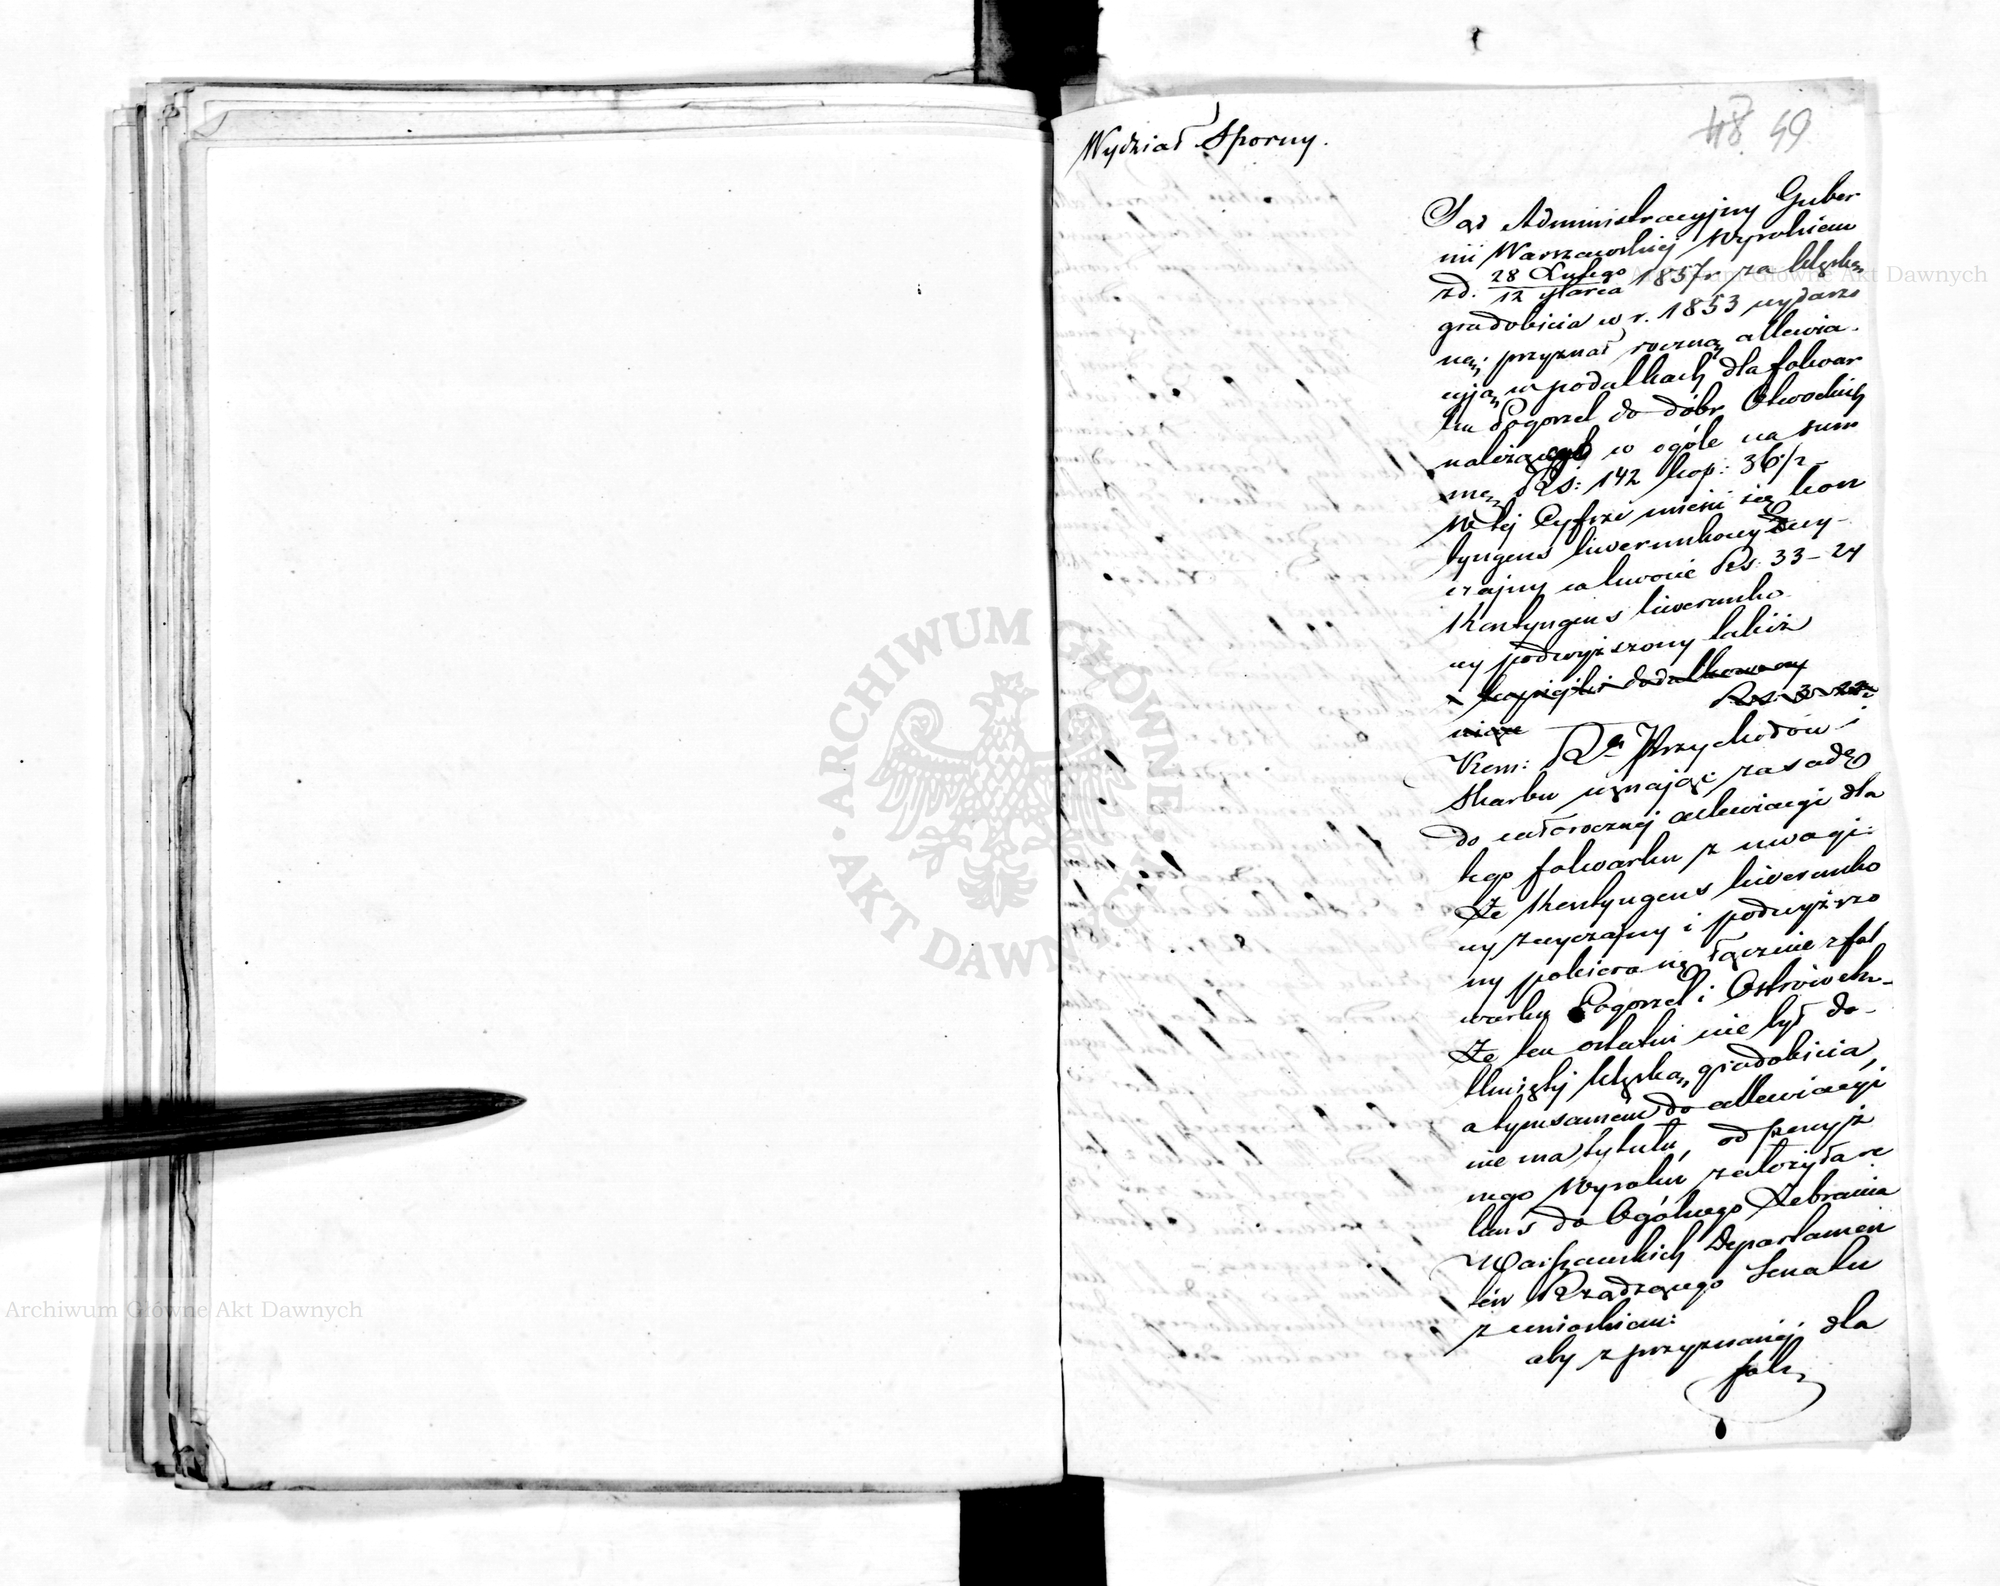 48 49
Wydział Sporny.
Sąd Administracyjny Guber
nii Warszawskiej wyrokiem
z d. 28 Lutego / 12 Marca 1857 r. za klęskę
gradobicia w r. 1853 wydarzo
ną; przyznał roczną allewia-
cyją w podatkach dla folwar
ku Pogorzel do dóbr Otwockich
należącego w ogóle na sum
mę Rs: 142 kop: 36 1/2
W tej Cyfrze mieści się kon
tyngens liwerunkowy zwy-
czajny w kwocie Rs. 33-24
Kontyngens liwerunko
wy podwyższony takiż
i kopiejki dodatkowey
Rs. 3-22
Kom: R. Przychodów i
Skarbu uznając zasadę
do całorocznej allewiacyi dla
tego folwarku z uwagi:
Że Kontyngens liwerunko
wy zwyczajny i podwyższo
ny pobiera się łącznie z fol
warku Pogorzel i Ostrówek-
Że ten ostatni nie był do-
tknięty klęską gradobicia,
a tymsamem do allewiacyi
nie ma tytułu, od powyż
szego Wyroku założyła re
kurs do Ogólnego Zebrania
Warszawskich Departamen
tów Rządzącego Senatu
z wnioskiem:
aby z przyznanej dla
folw
ARCHIWUM GŁÓWNE AKT DAWNYCH
Archiwum Główne Akt Dawnych
Archiwum Główne Akt Dawnych